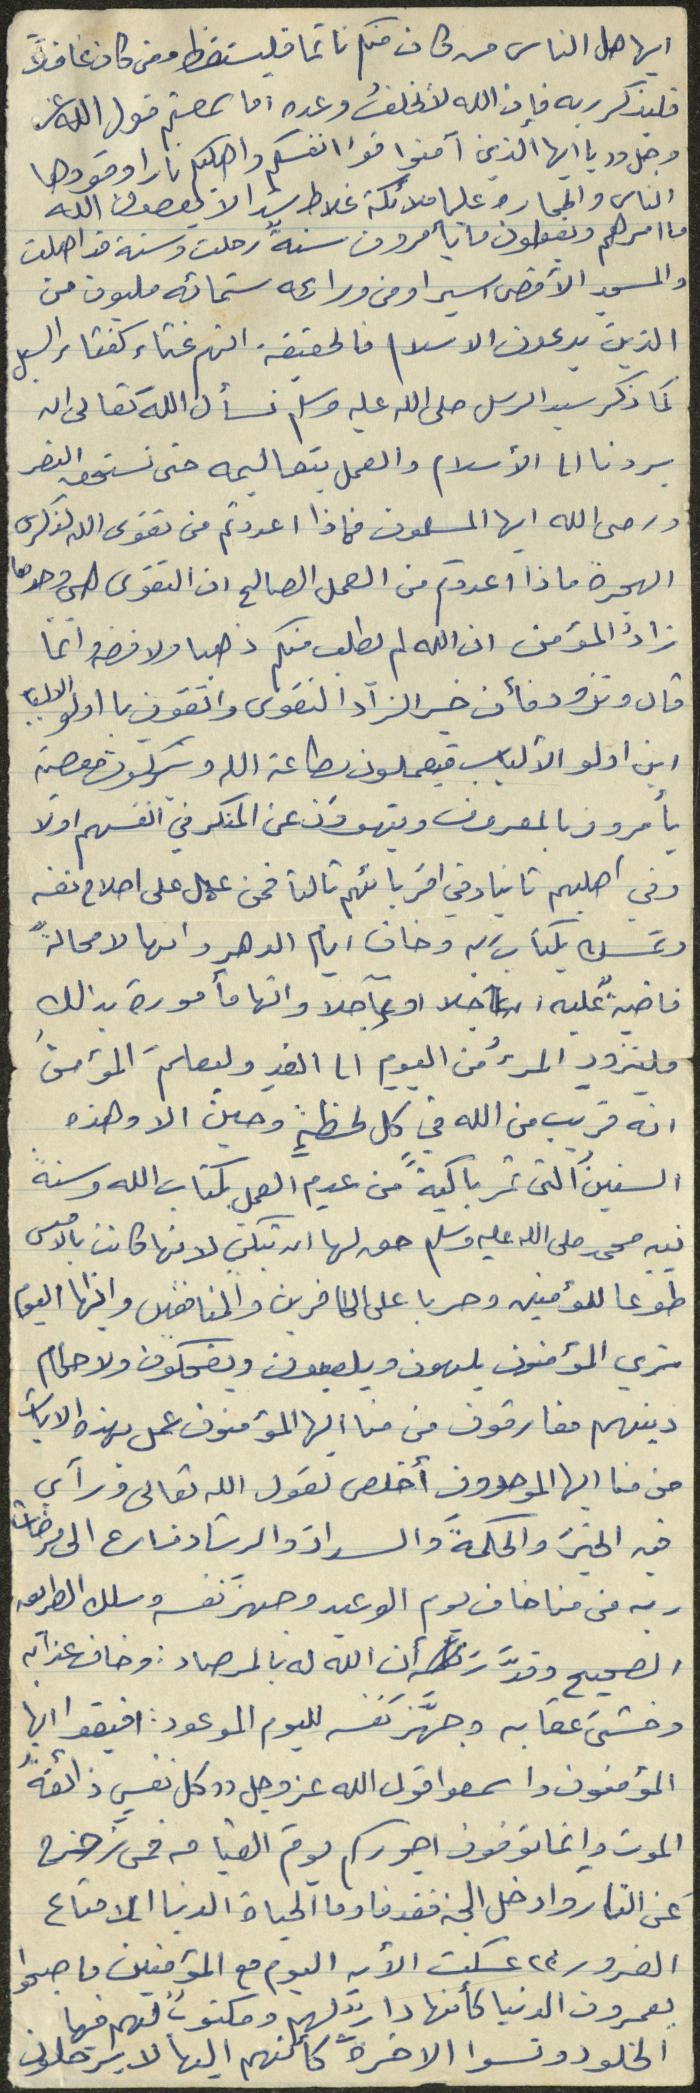 ايها الناس من كان منكم نائما فليستقظ ومن كان غافلاً
فليذكر ربه فإن الله لا يخلف وعده اما سمعتم قول الله عز
وجل دد يا ايها الذين آمنوا قوا انفسكم واهليكم نارا وقودها
الناس والحجاره عليها ملائكة غلاظ شداد لا يعصون الله
ما امرهم ويفعلون ما يأمرون سنةٌ رحلت وسنة قد اهلت
والمسجد الأقصى اسير اومن ورائه ستمائه مليون من
الذين يدعون الاسلام فالحقيقه انهم غثاء كغثاء السيل
كما ذكر سيد الرسل صلى الله عليه وسلم نسأل الله تعالى ان
يردنا الى الأسلام والعمل بتعاليمه حتى نستحق النصر
ورضى الله ايها المسلمون فماذا اعددتم من تقوى الله لذكرى
الهجرة ماذا اعددتم من العمل الصالح ان التقوى هي وحدها
زادُ المؤمن ان الله لم يطلب منكم ذهبا ولا فضه وانما
قال وتزود فأن خير الزآد التقوى واتقون يا اولو الالباب
اين اولو الألباب فيعملون بطاعة الله ويتركون معصيته
يأمرون بالمعروف وينهون عن المنكر في انفسهم اولا
وفي اهليهم ثانيا وفي اقربائهم ثالثا فمن عمل على اصلاح نفسه
وتمسك بكتاب ربه وخاف ايام الدهر وانها لا محالةً
قاضيةٌ عليه ان عاجلا او آجلا وانها مأمورة بذالك
فليتزود المرءُ من اليوم الى الغدِ وليعلم المؤمنُ
انه قريب من الله في كل لحظةٍ وحين الا وهذه
السنينُ التى تمر باكيةً من عدم العمل بكتاب الله وسنة
نبيه محمد صلى الله عليه وسلم حق لها ان تبكي لانها كانت بالامس
طوعا للمؤمنين وحربا على الكافرين والمنافقين وانها اليوم
ترى المؤمنون يلهون ويلعبون ويضحكون ولاحكام
دينهم مفارقون من منا ايها المؤمنون عمل بهذه الايات
من منا ايها الموحدون أخلص لقول الله تعالى ورآى
فيه الخيرَ والحكمةَ والسدادَ والرشاد فسارع الى مرضات
ربه من منا خاف يوم الوعيد وجهز نفسه وسلك الطريق
الصحيح وقدَّر أن الله له بالمرصاد : وخاف عذابه
وخشىَ عقابه وجهَّز نَفسه لليوم الموعود : افيقوا ايها
المؤمنون واسمعوا قول الله عز وجل دد كل نفسٍ ذائقةُ
الموت وانما توفون اجوركم يوم القيامه فمن زحزح
عن النار وادخل الجنه فقد فاز وما الحياة الدنيا الا متاع
الغرور ،، عكست الأيه اليوم مع المؤمنين فاصبحوا
يعمرون الدنيا كأنها دارٌ لهم ومكتوبٌ لهم فيها
الخلود ونسوا الاخرةَ كأنهم اليها لا يرحلون